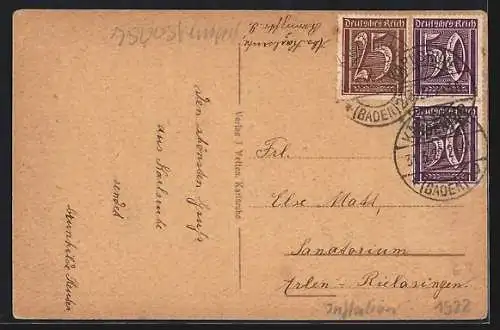 Abs. Karlsruhe,
Deutsches Reich
25
Deutsches Reich
50
50
KARLSRUHE
(BADEN)
(BADEN)
den schönsten Gruß
aus Karlsruhe
sendet
Verlag J. Velten, Karlsruhe
Frl.
Else Matt,
Sanatorium
Arlen - Rielasingen.
Inflation 1922